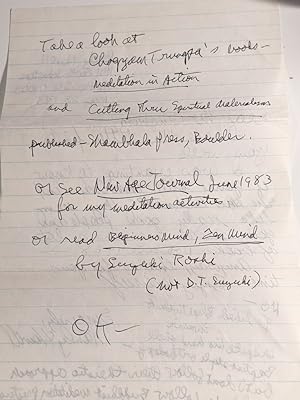 Take a look at
Chogyam Trungpa's books—
Meditation in Action
and Cutting Thru Spiritual Materialism
published — Shambhala Press, Boulder.
Or see New Age Journal June 1983
for my meditation activities
or read Beginners Mind, Zen Mind
by Suzuki Roshi
(not D.T. Suzuki)
OK—